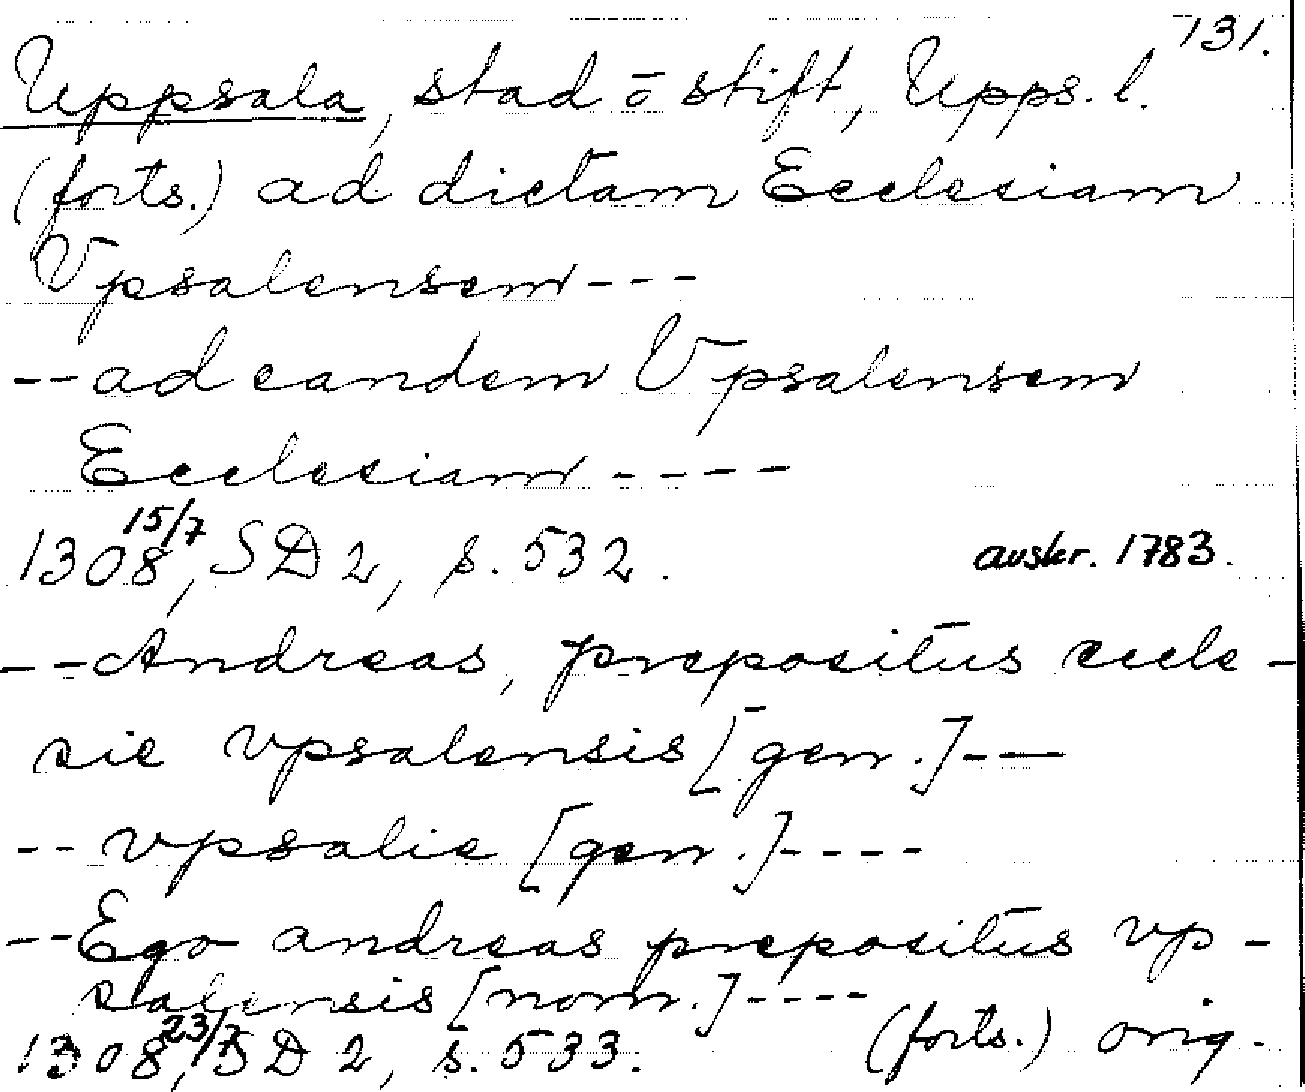 131.
Uppsala, stad o stift, Upps. l.
(forts.) ad dictam Ecclesiam
Vpsalensem ---
-- ad eandem Vpsalensem
Ecclesiam ----
1308 15/7, SD 2, s. 532. avskr. 1783.
-- Andreas, prepositus eccle-
sie vpsalensis [gen.] --
-- vpsalie [gen.] ----
-- Ego andreas prepositus vp-
salensis [nom.] ----
(forts.) orig.
1308 23/7, SD 2, s. 533.